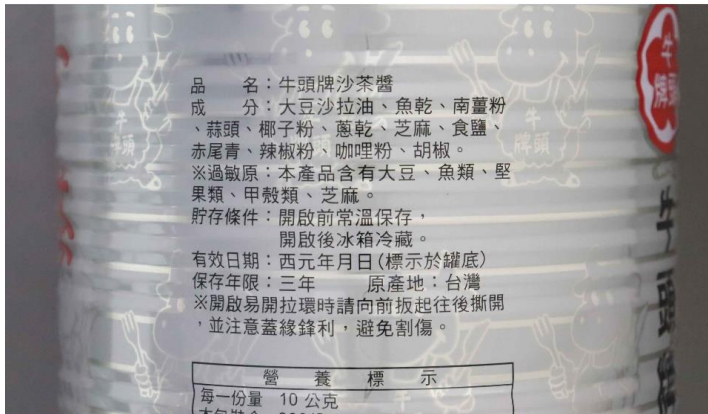 品　　名：牛頭牌沙茶醬
成　　分：大豆沙拉油、魚乾、南薑粉
、蒜頭、椰子粉、蔥乾、芝麻、食鹽、
赤尾青、辣椒粉、咖哩粉、胡椒。
※過敏原：本產品含有大豆、魚類、堅
果類、甲殼類、芝麻。
貯存條件：開啟前常溫保存，
開啟後冰箱冷藏。
有效日期：西元年月日(標示於罐底)
保存年限：三年　　原產地：台灣
※開啟易開拉環時請向前扳起往後撕開
，並注意蓋緣鋒利，避免割傷。
營 養 標 示
每一份量 10 公克
牛頭
牌
牛
牌頭
牛
頭